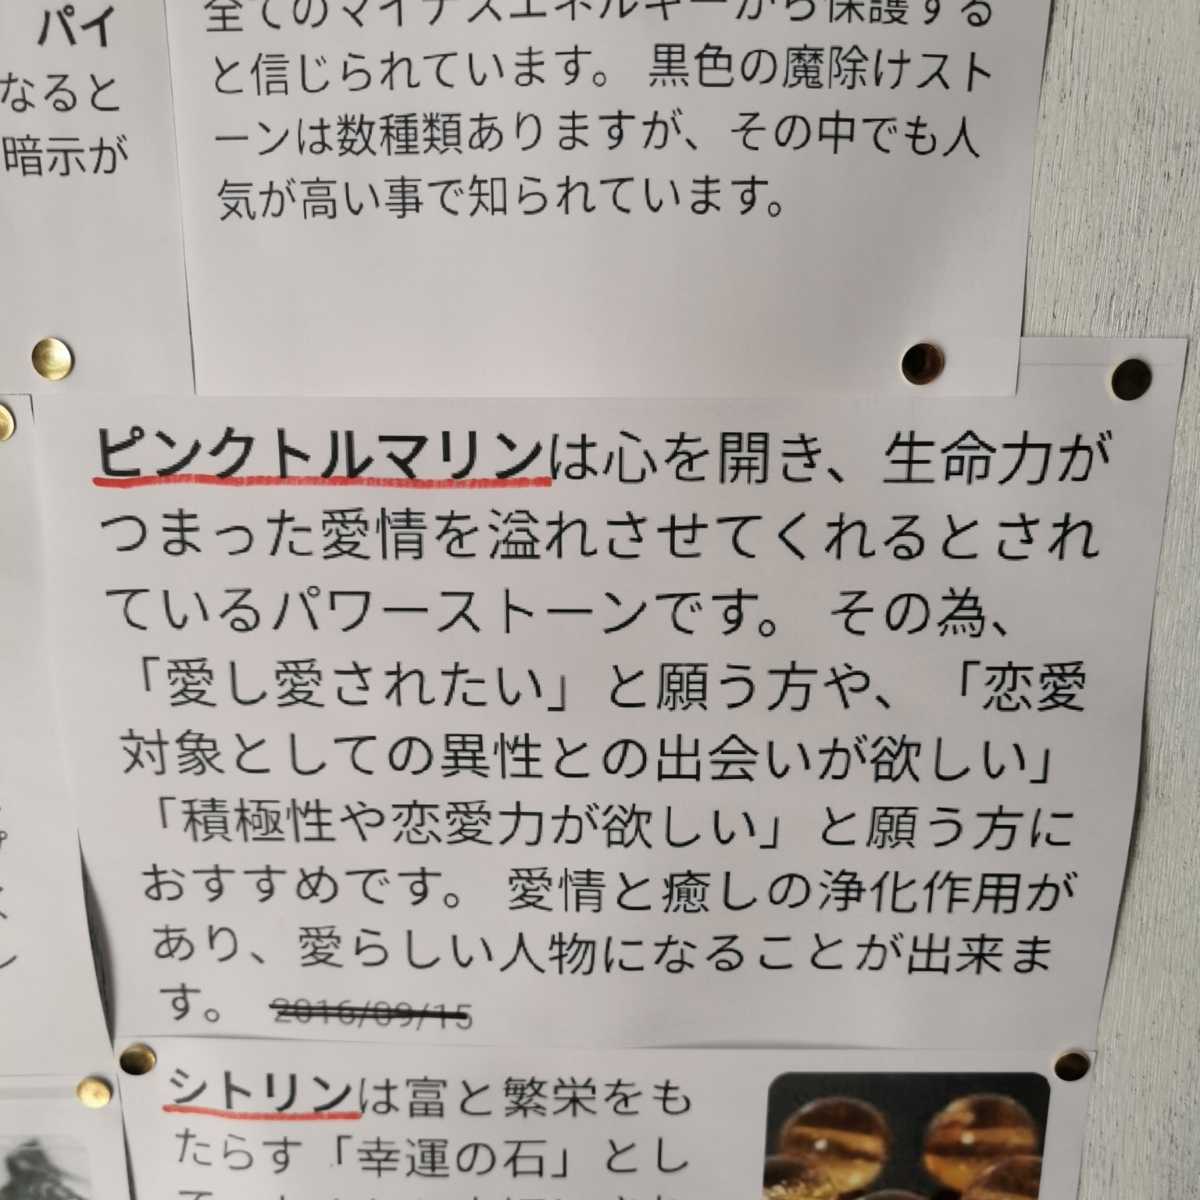 パイ
なると
暗示が
全てのマイナスエネルギーから保護する
と信じられています。 黒色の魔除けスト
ーンは数種類ありますが、その中でも人
気が高い事で知られています。
ピンクトルマリンは心を開き、生命力が
つまった愛情を溢れさせてくれるとされ
ているパワーストーンです。 その為、
「愛し愛されたい」と願う方や、「恋愛
対象としての異性との出会いが欲しい」
「積極性や恋愛力が欲しい」と願う方に
おすすめです。 愛情と癒しの浄化作用が
あり、愛らしい人物になることが出来ま
す。 2016/09/15
シトリンは富と繁栄をも
たらす「幸運の石」とし